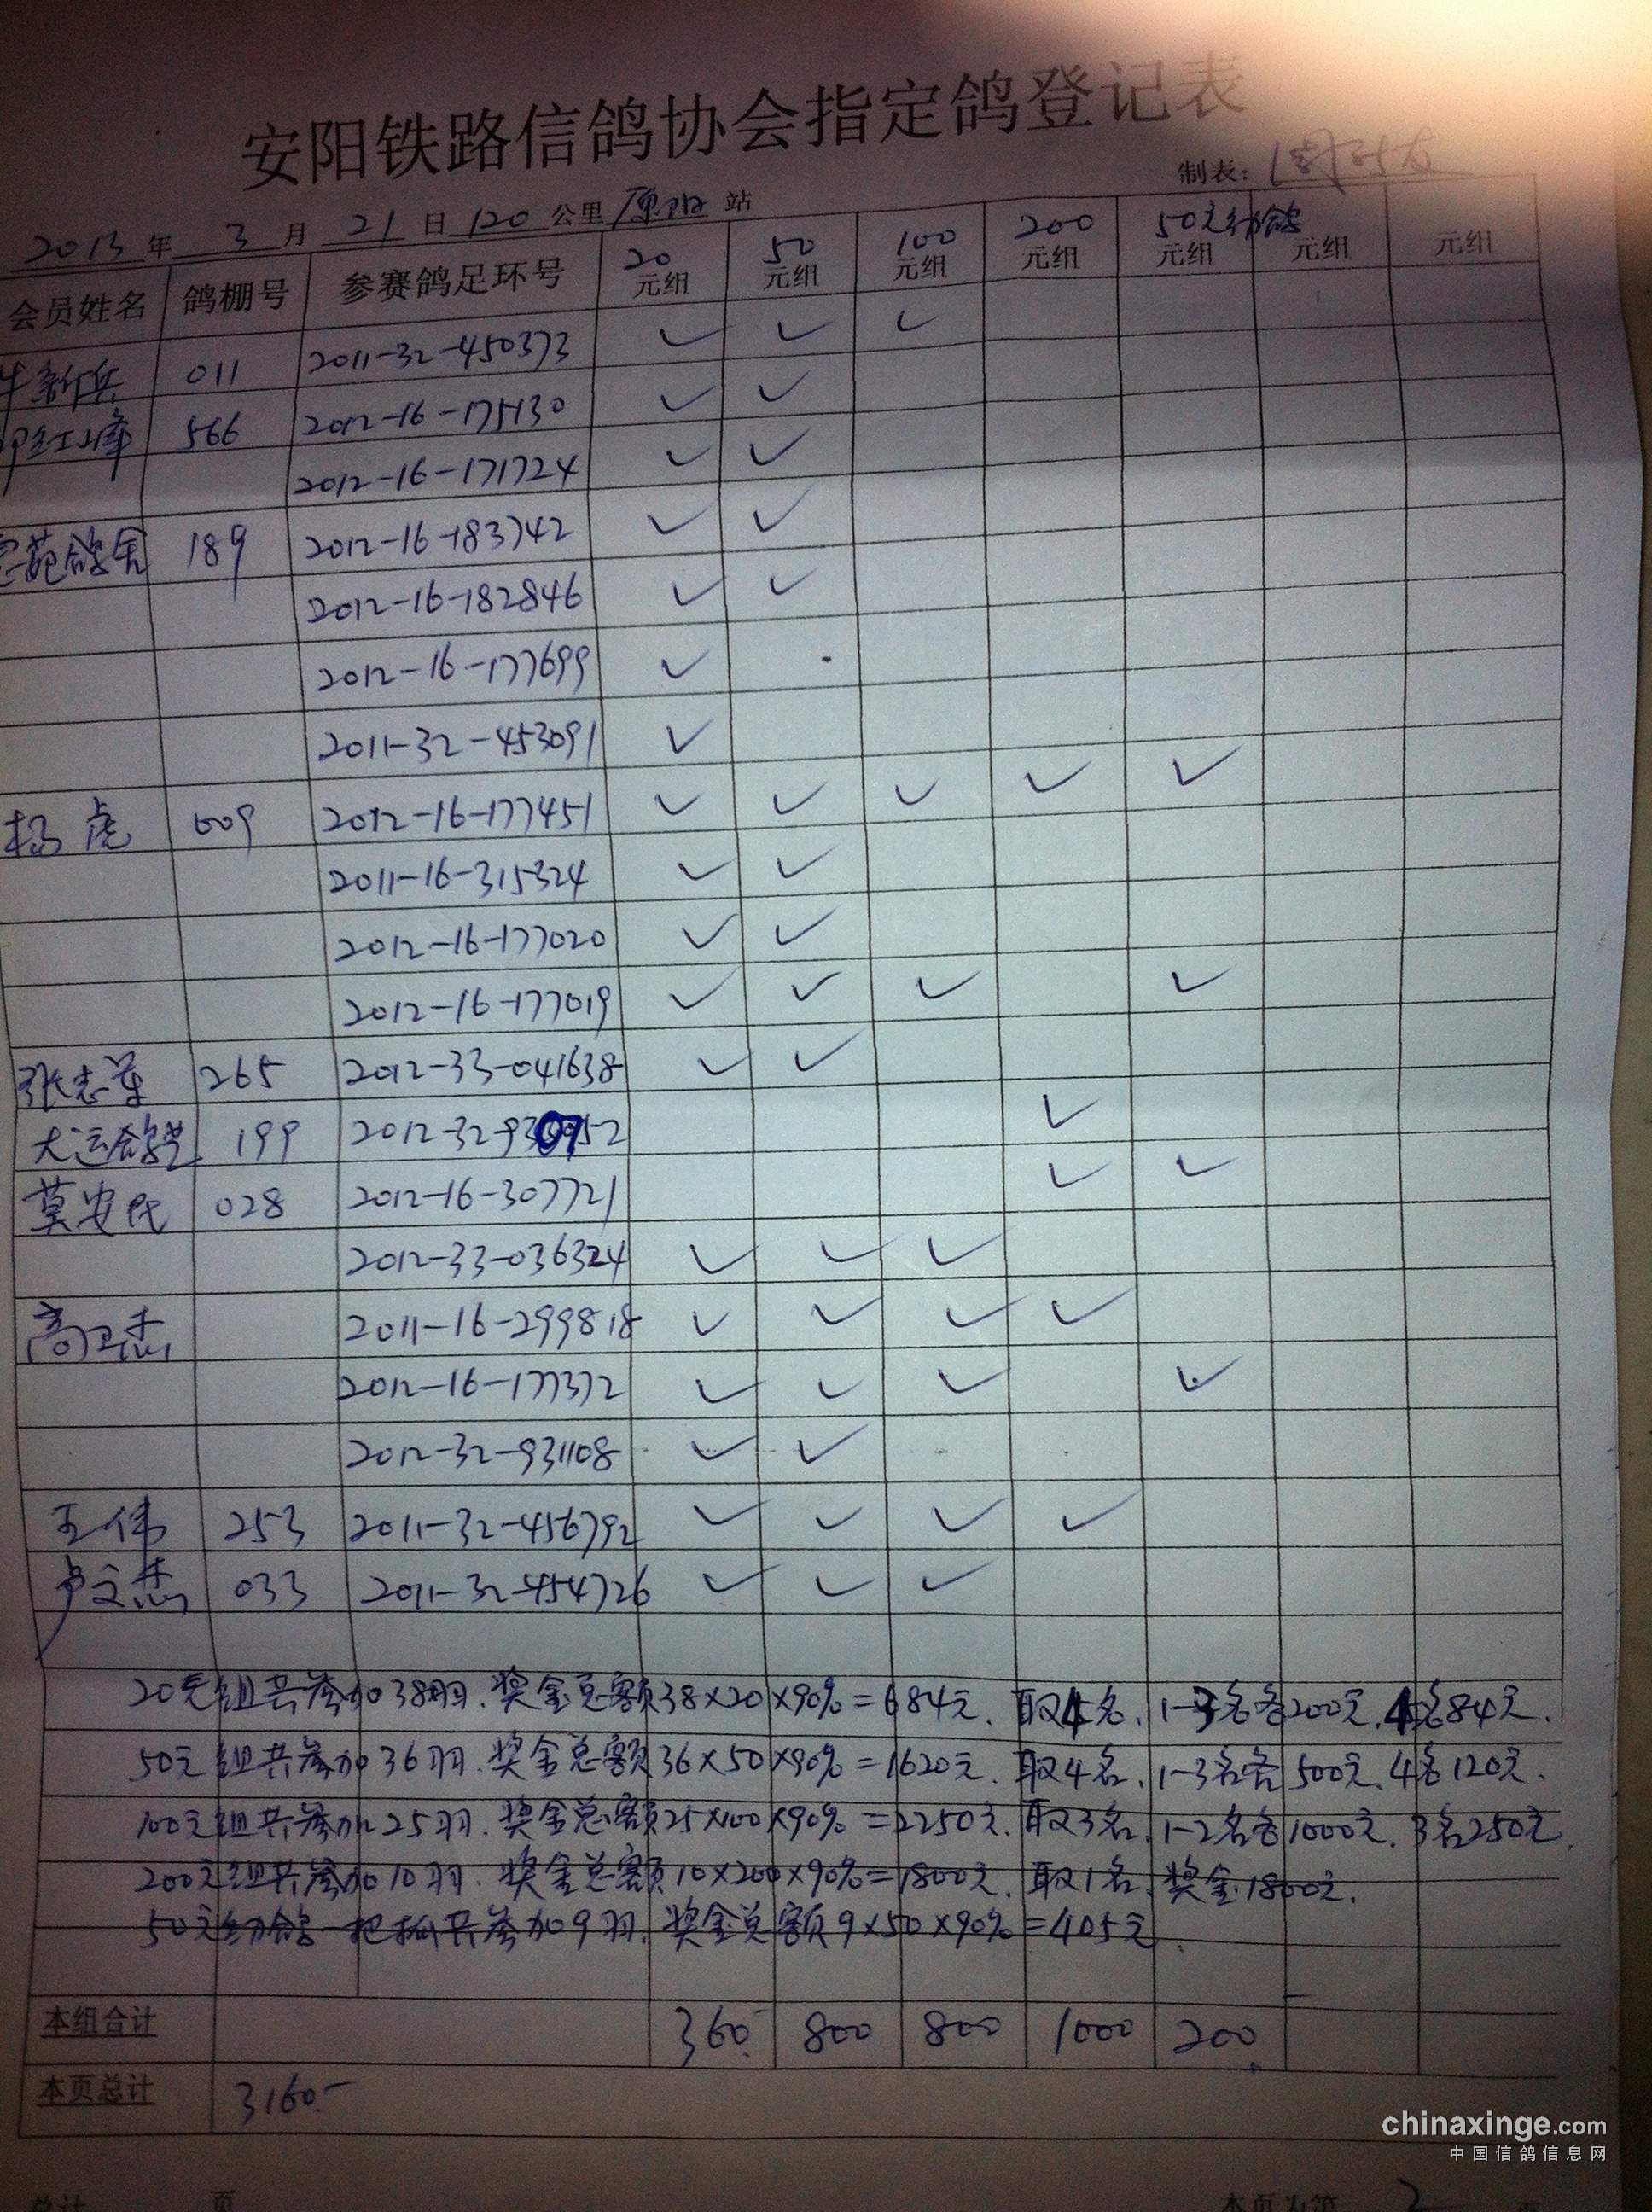 安阳铁路信鸽协会指定鸽登记表
制表:
2013 年 3 月 21 日 120 公里 原阳 站
会员姓名 鸽棚号 参赛鸽足环号 20元组 50元组 100元组 200元组 50元幼鸽元组 元组 元组
牛新兵 011 2011-32-450373 ✓ ✓ ✓
红峰 566 2012-16-175130 ✓ ✓
2012-16-171724 ✓ ✓
苑鸽舍 189 2012-16-183742 ✓ ✓
2012-16-182846 ✓ ✓
2012-16-177699 ✓
2011-32-453091 ✓
杨虎 009 2012-16-177451 ✓ ✓ ✓ ✓ ✓
2011-16-315324 ✓ ✓
2012-16-177020 ✓ ✓
2012-16-177019 ✓ ✓ ✓ ✓
张志军 265 2012-33-041638 ✓ ✓
大运鸽堂 199 2012-32-930752 ✓
莫安民 028 2012-16-307721 ✓ ✓
2012-33-036324 ✓ ✓ ✓
高卫杰 2011-16-299818 ✓ ✓ ✓ ✓
2012-16-177372 ✓ ✓ ✓ ✓
2012-32-931108 ✓ ✓
王伟 253 2011-32-456792 ✓ ✓ ✓ ✓
卢文杰 033 2011-32-454726 ✓ ✓ ✓
20元组共参加38羽.奖金总额38×20×90%=684元.取4名.1-3名各200元.4名84元.
50元组共参加36羽.奖金总额36×50×90%=1620元.取4名.1-3名各500元.4名120元.
100元组共参加25羽.奖金总额25×100×90%=2250元.取3名.1-2名各1000元.3名250元.
200元组共参加10羽.奖金总额10×200×90%=1800元.取1名.奖金1800元.
50元幼鸽一把抓共参加9羽.奖金总额9×50×90%=405元.
本组合计 360 800 800 1000 200
本页总计 3160.-
chinaxinge.com
中国信鸽信息网
总计 页 本页为第 2 页